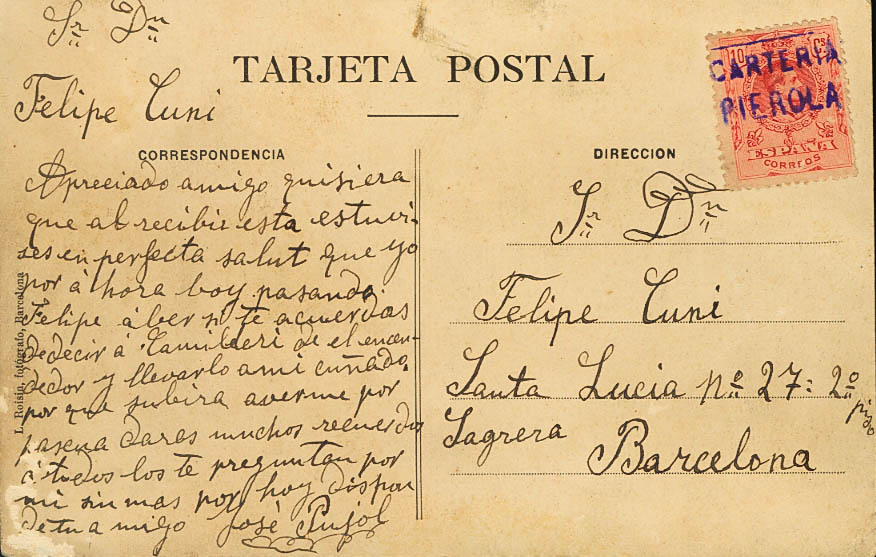 Sr Dn
TARJETA POSTAL
Felipe Cuni
CORRESPONDENCIA
Apreciado amigo quisiera
que al recibir esta estuvi-
ses en perfecta salut que yo
por á hora boy pasando.
Felipe á ber si te acuerdas
de decir á de el encen-
dedor y llevarlo a mi cuñado.
por que subira averme por
pascua daras muchos recuerdos
á tudos los te preguntan por
mi sin mas por hoy dispon
de tu amigo José Pujol
L. Roisin, fotógrafo, Barcelona
10 Cs
CARTERIA
PIEROLA
ESPAÑA
CORREOS
DIRECCION
Sr Dn
Felipe Cuni
Santa Lucia nº 27: 2º piso
Sagrera
Barcelona